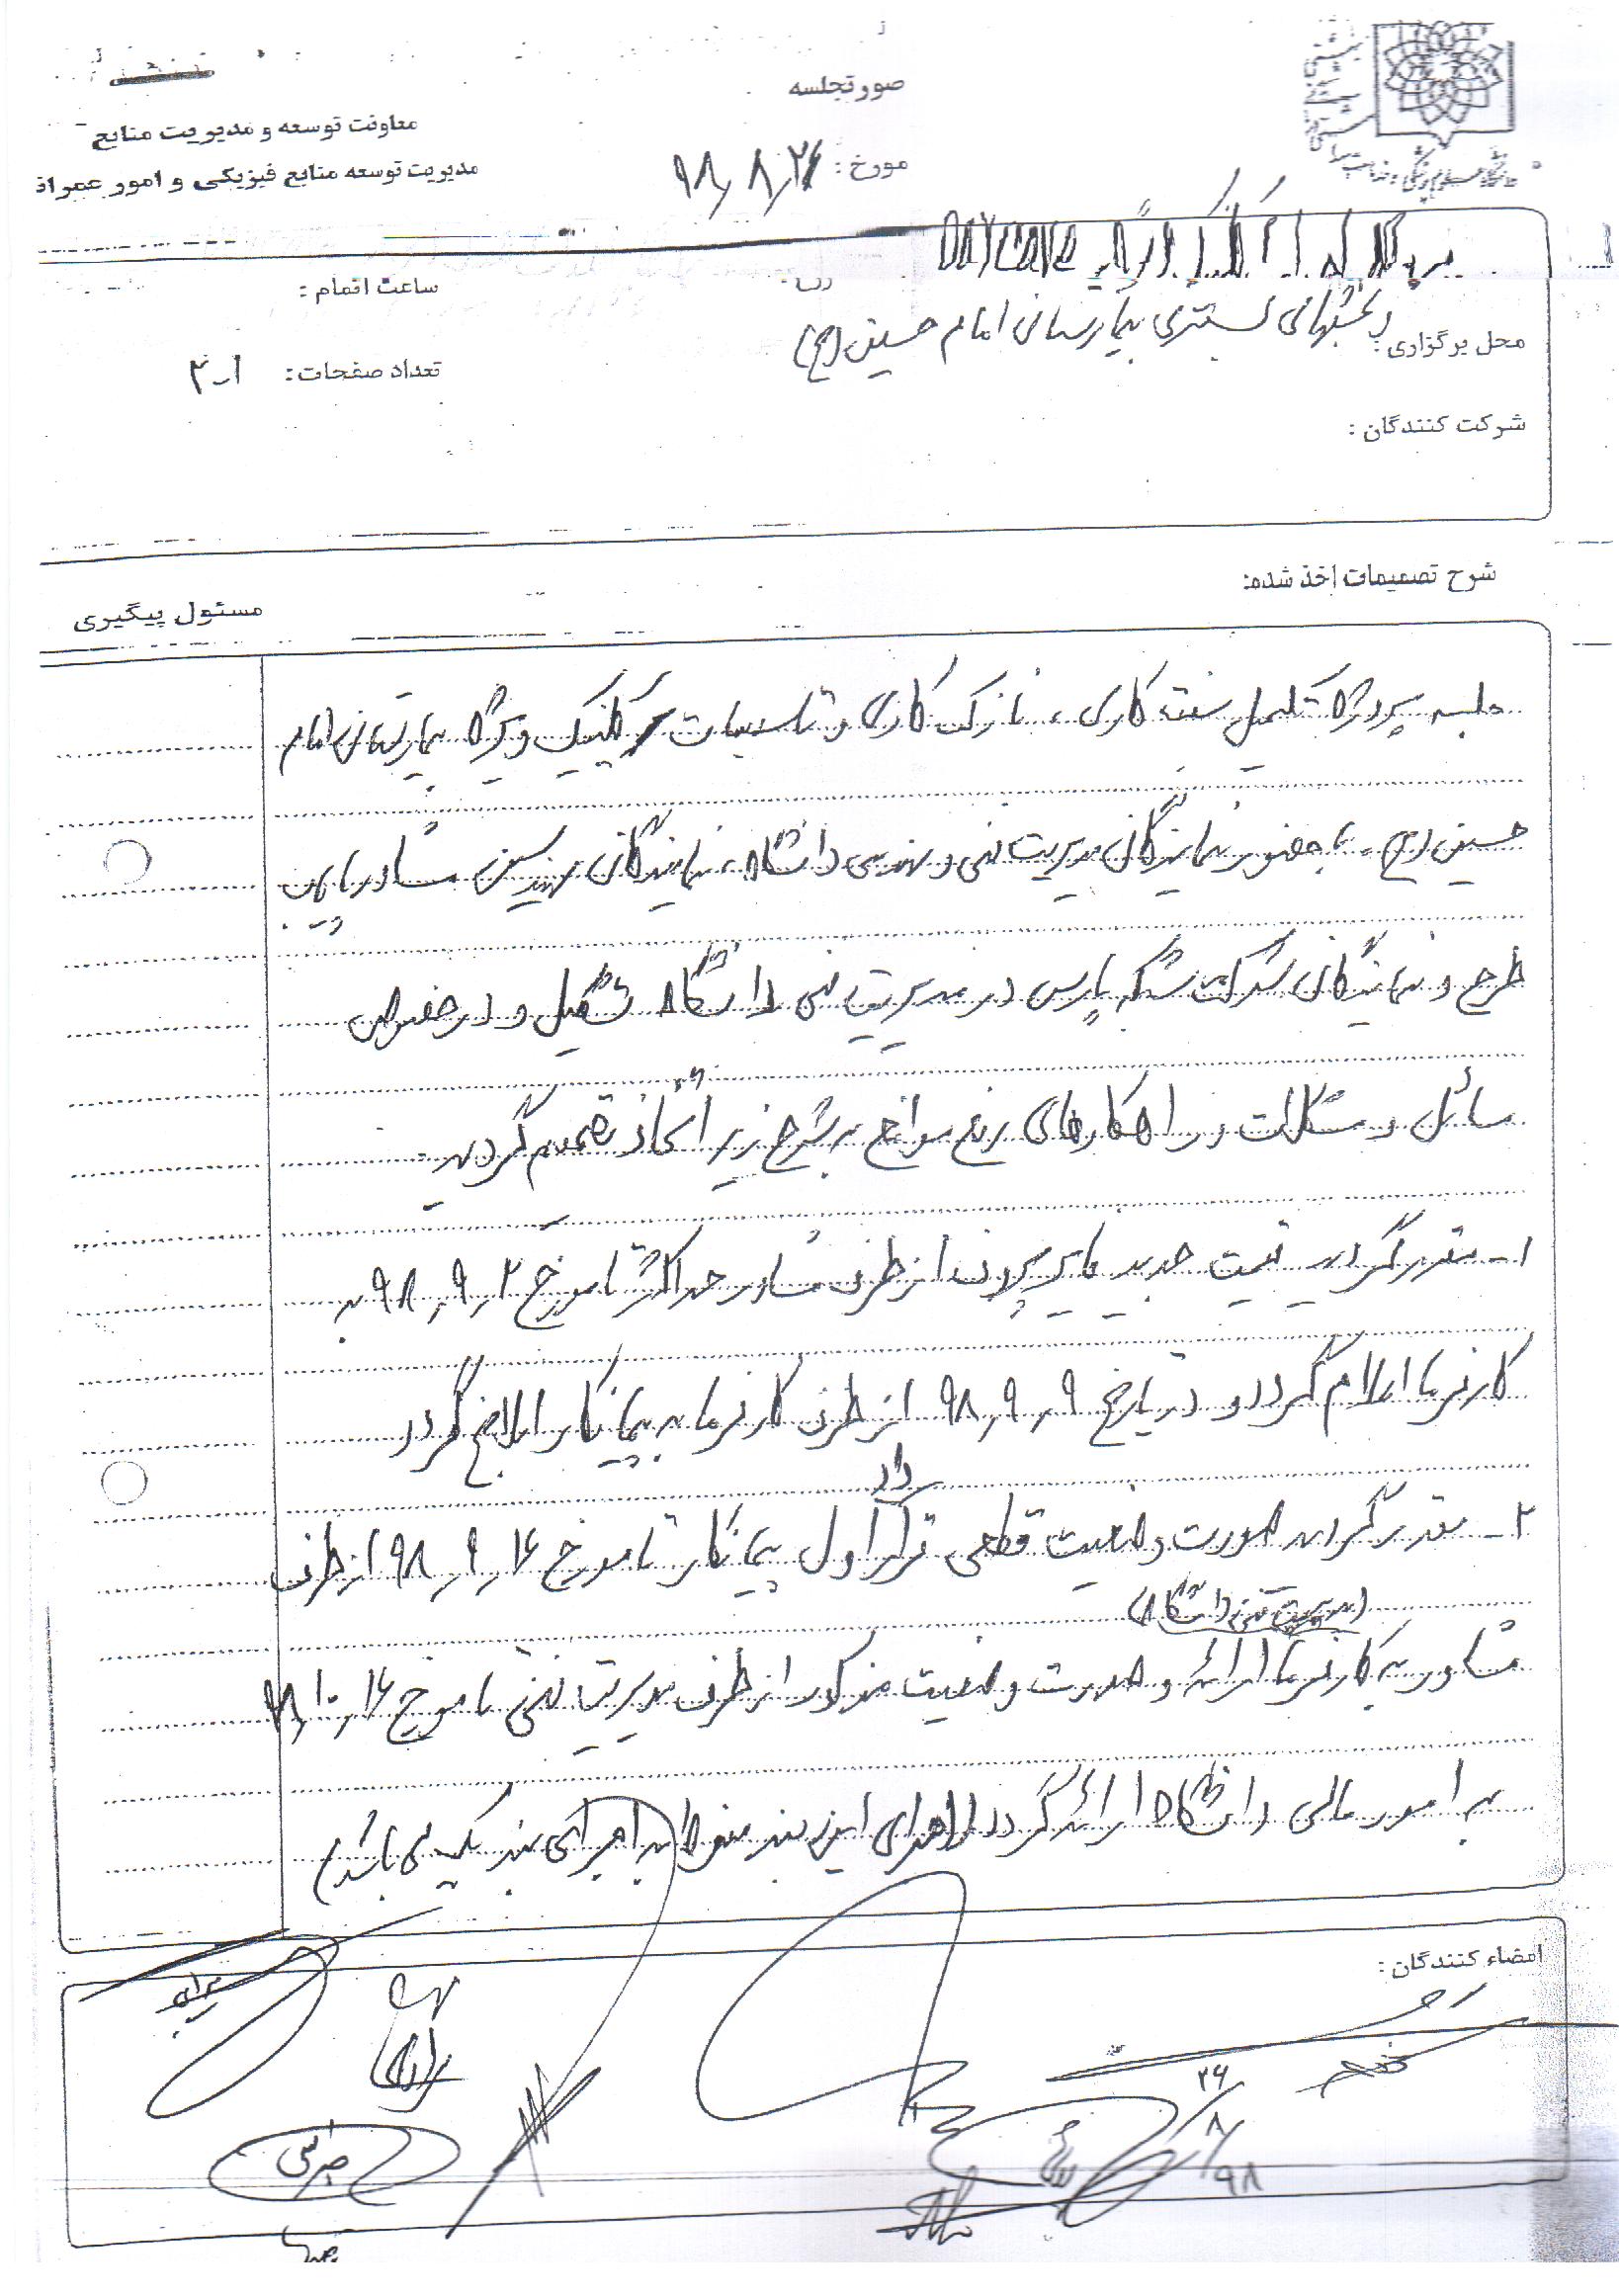 صورتجلسه
معاونت توسعه و مدیریت منابع
مدیریت توسعه منابع فیزیکی و امور عمرانی
مورخ : ۹۸٫۸٫۲۶
پروژه درمانگاه ویژه Daycare
و بخشهای بستری بیمارستان امام حسین (ع)
ساعت اتمام :
محل برگزاری :
تعداد صفحات : ۱-۳
شرکت کنندگان :
شرح تصمیمات اخذ شده:
مسئول پیگیری
جلسه پروژه تکمیل سفت کاری ، نازک کاری و تاسیسات کلینیک ویژه بیمارستان امام
حسین (ع) با حضور نمایندگان مدیریت فنی و مهندسی دانشگاه ، نمایندگان مهندسین مشاور
طرح و نمایندگان شرکت شبکه پارس در مدیریت فنی دانشگاه تشکیل و در خصوص
مسائل و مشکلات و راهکارهای رفع موانع به شرح زیر اتخاذ تصمیم گردید.
۱- مقرر گردید قیمت جدید از طرف مشاور حداکثر تا مورخ ۲ر۹ر۹۸ به
کارفرما اعلام گردد و در تاریخ ۹ر۹ر۹۸ از طرف کارفرما به پیمانکار ابلاغ گردد
۲- مقرر گردید صورت وضعیت قطعی قرارداد اول پیمانکار تا مورخ ۱۶ر۹ر۹۸ از طرف
(مدیریت فنی دانشگاه)
مشاور به کارفرما ارائه و صورت وضعیت مذکور از طرف مدیریت فنی تا مورخ ۱۶ر۱۰ر۹۸
به امور مالی دانشگاه ارائه گردد (اجرای این بند منوط به اجرای بند یک می باشد)
امضاء کنندگان :
۲۶/۸/۹۸